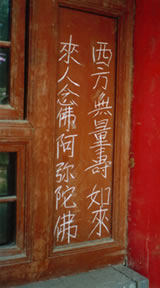 西方無量壽如來
來人念佛阿弥陀佛